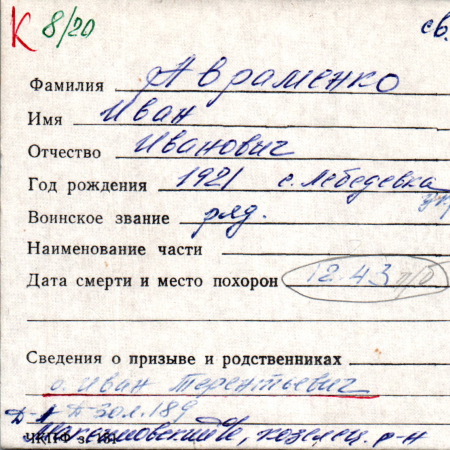 К 8/20 св.
Фамилия Авраменко
Имя Иван
Отчество Иванович
Год рождения 1921 с. Лебедевка
Воинское звание ряд.
Наименование части
Дата смерти и место похорон 12.43 п/б
Сведения о призыве и родственниках
о. Иван Терентьевич
Д-1 Д-30 л. 189
козелец. р-н